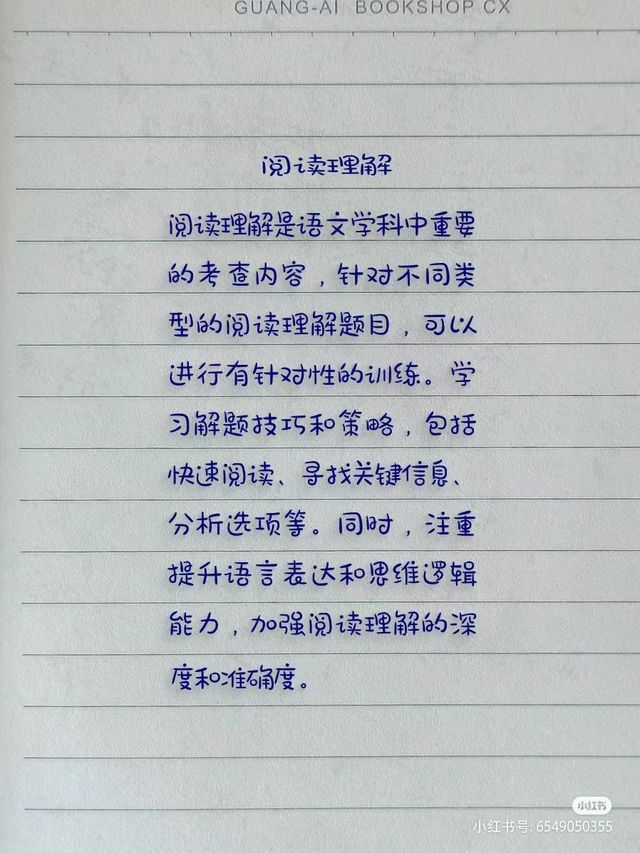 GUANG-AI BOOKSHOP CX
阅读理解
阅读理解是语文学科中重要
的考查内容，针对不同类
型的阅读理解题目，可以
进行有针对性的训练。学
习解题技巧和策略，包括
快速阅读、寻找关键信息、
分析选项等。同时，注重
提升语言表达和思维逻辑
能力，加强阅读理解的深
度和准确度。
小红书
小红书号: 6549050355